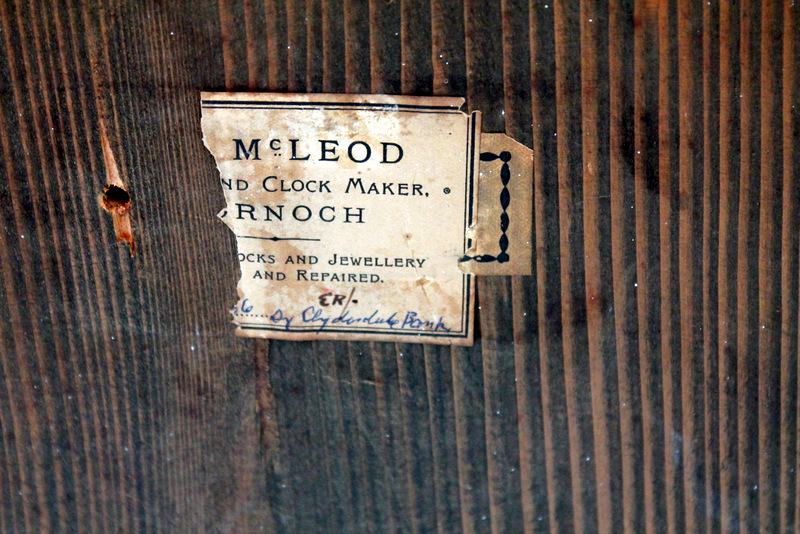 McLEOD
ND CLOCK MAKER,
RNOCH
OCKS AND JEWELLERY
AND REPAIRED.
ER/-
6 By Clydesdale Bank